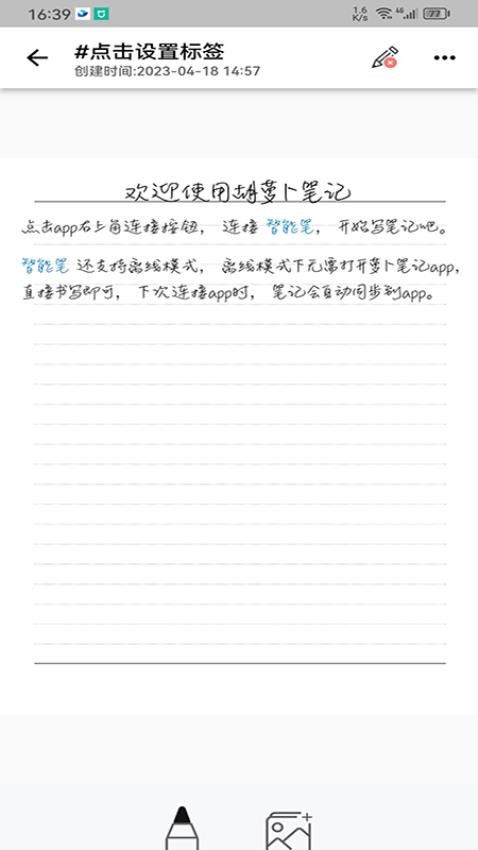 16:39
1.6 K/s 4G 77
#点击设置标签
创建时间:2023-04-18 14:57
欢迎使用胡萝卜笔记
点击app右上角连接按钮， 连接 智能笔， 开始写笔记吧。
智能笔 还支持离线模式， 离线模式下无需打开萝卜笔记app，
直接书写即可， 下次连接app时， 笔记会自动同步到app。